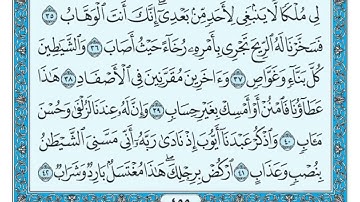 لِى مُلْكًا لَّا يَنۢبَغِى لِأَحَدٍ مِّنۢ بَعْدِىٓ ۖ إِنَّكَ أَنتَ ٱلْوَهَّابُ ٣٥
فَسَخَّرْنَا لَهُ ٱلرِّيحَ تَجْرِى بِأَمْرِهِۦ رُخَآءً حَيْثُ أَصَابَ ٣٦ وَٱلشَّيَـٰطِينَ
كُلَّ بَنَّآءٍ وَغَوَّاصٍ ٣٧ وَءَاخَرِينَ مُقَرَّنِينَ فِى ٱلْأَصْفَادِ ٣٨ هَـٰذَا
عَطَآؤُنَا فَٱمْنُنْ أَوْ أَمْسِكْ بِغَيْرِ حِسَابٍ ٣٩ وَإِنَّ لَهُۥ عِندَنَا لَزُلْفَىٰ وَحُسْنَ
مَـَٔابٍ ٤٠ وَٱذْكُرْ عَبْدَنَآ أَيُّوبَ إِذْ نَادَىٰ رَبَّهُۥٓ أَنِّى مَسَّنِىَ ٱلشَّيْطَـٰنُ
بِنُصْبٍ وَعَذَابٍ ٤١ ٱرْكُضْ بِرِجْلِكَ ۖ هَـٰذَا مُغْتَسَلٌۢ بَارِدٌ وَشَرَابٌ ٤٢